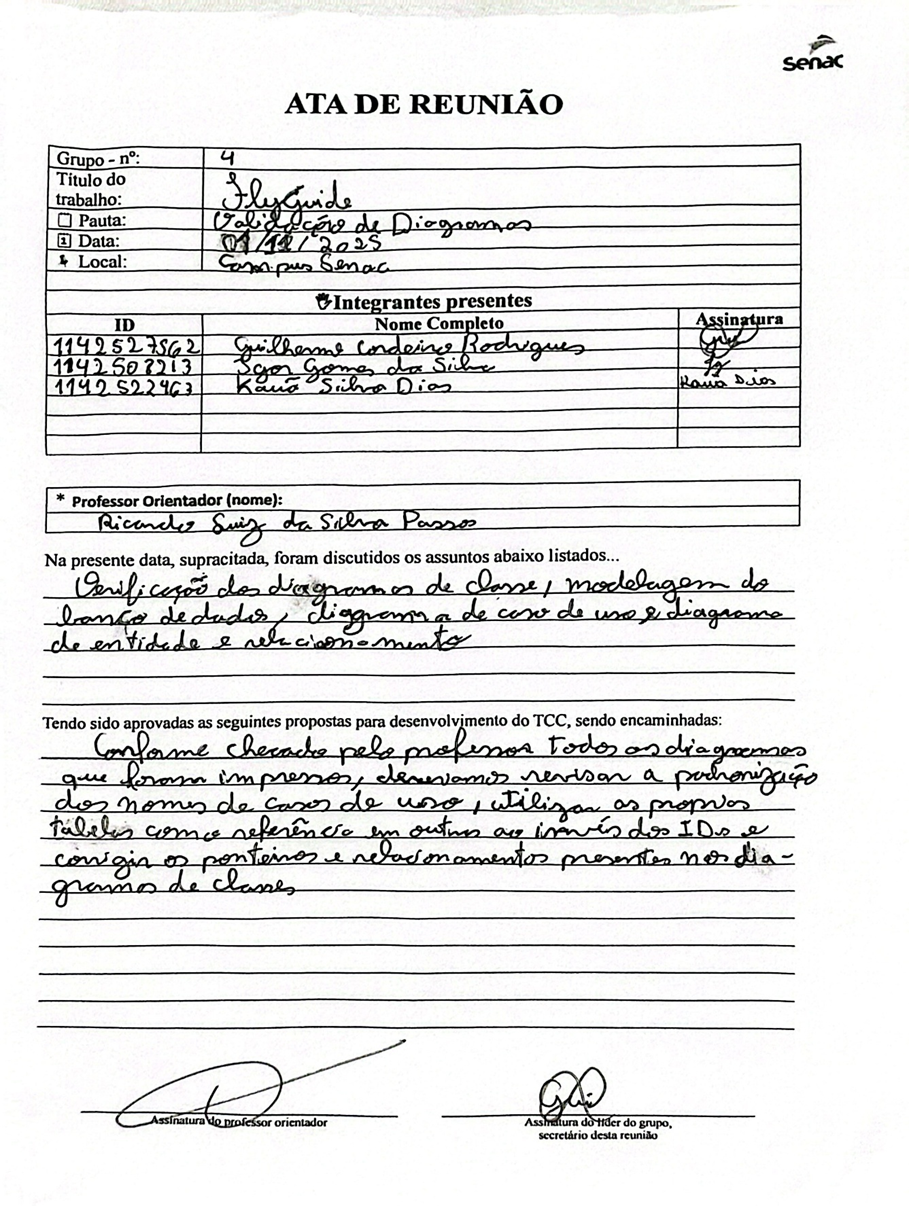 Senac
ATA DE REUNIÃO
Grupo - nº: 4
Titulo do
trabalho: FlyGuide
Pauta: Validação de Diagramas
Data: /2025
Local: Campus Senac
Integrantes presentes
ID Nome Completo Assinatura
1142527562 Guilherme Cordeiro Rodrigues
1142507213 Igor Gomes da Silva
1142522463 Kauã Silva Dias Kauã Dias
* Professor Orientador (nome):
Ricardo Luiz da Silva Passos
Na presente data, supracitada, foram discutidos os assuntos abaixo listados...
Verificação dos diagramas de classe, modelagem do
banco de dados, diagrama de caso de uso e diagrama
de entidade e relacionamento
Tendo sido aprovadas as seguintes propostas para desenvolvimento do TCC, sendo encaminhadas:
Conforme checado pelo professor todos os diagramas
que foram impressos, devemos revisar a padronização
dos nomes de casos de uso, utilizar as proprias
tabelas como referência em outras ao invés dos IDs e
corrigir os ponteiros e relacionamentos presentes nos dia-
gramas de classes
Assinatura do professor orientador
Assinatura do líder do grupo,
secretário desta reunião